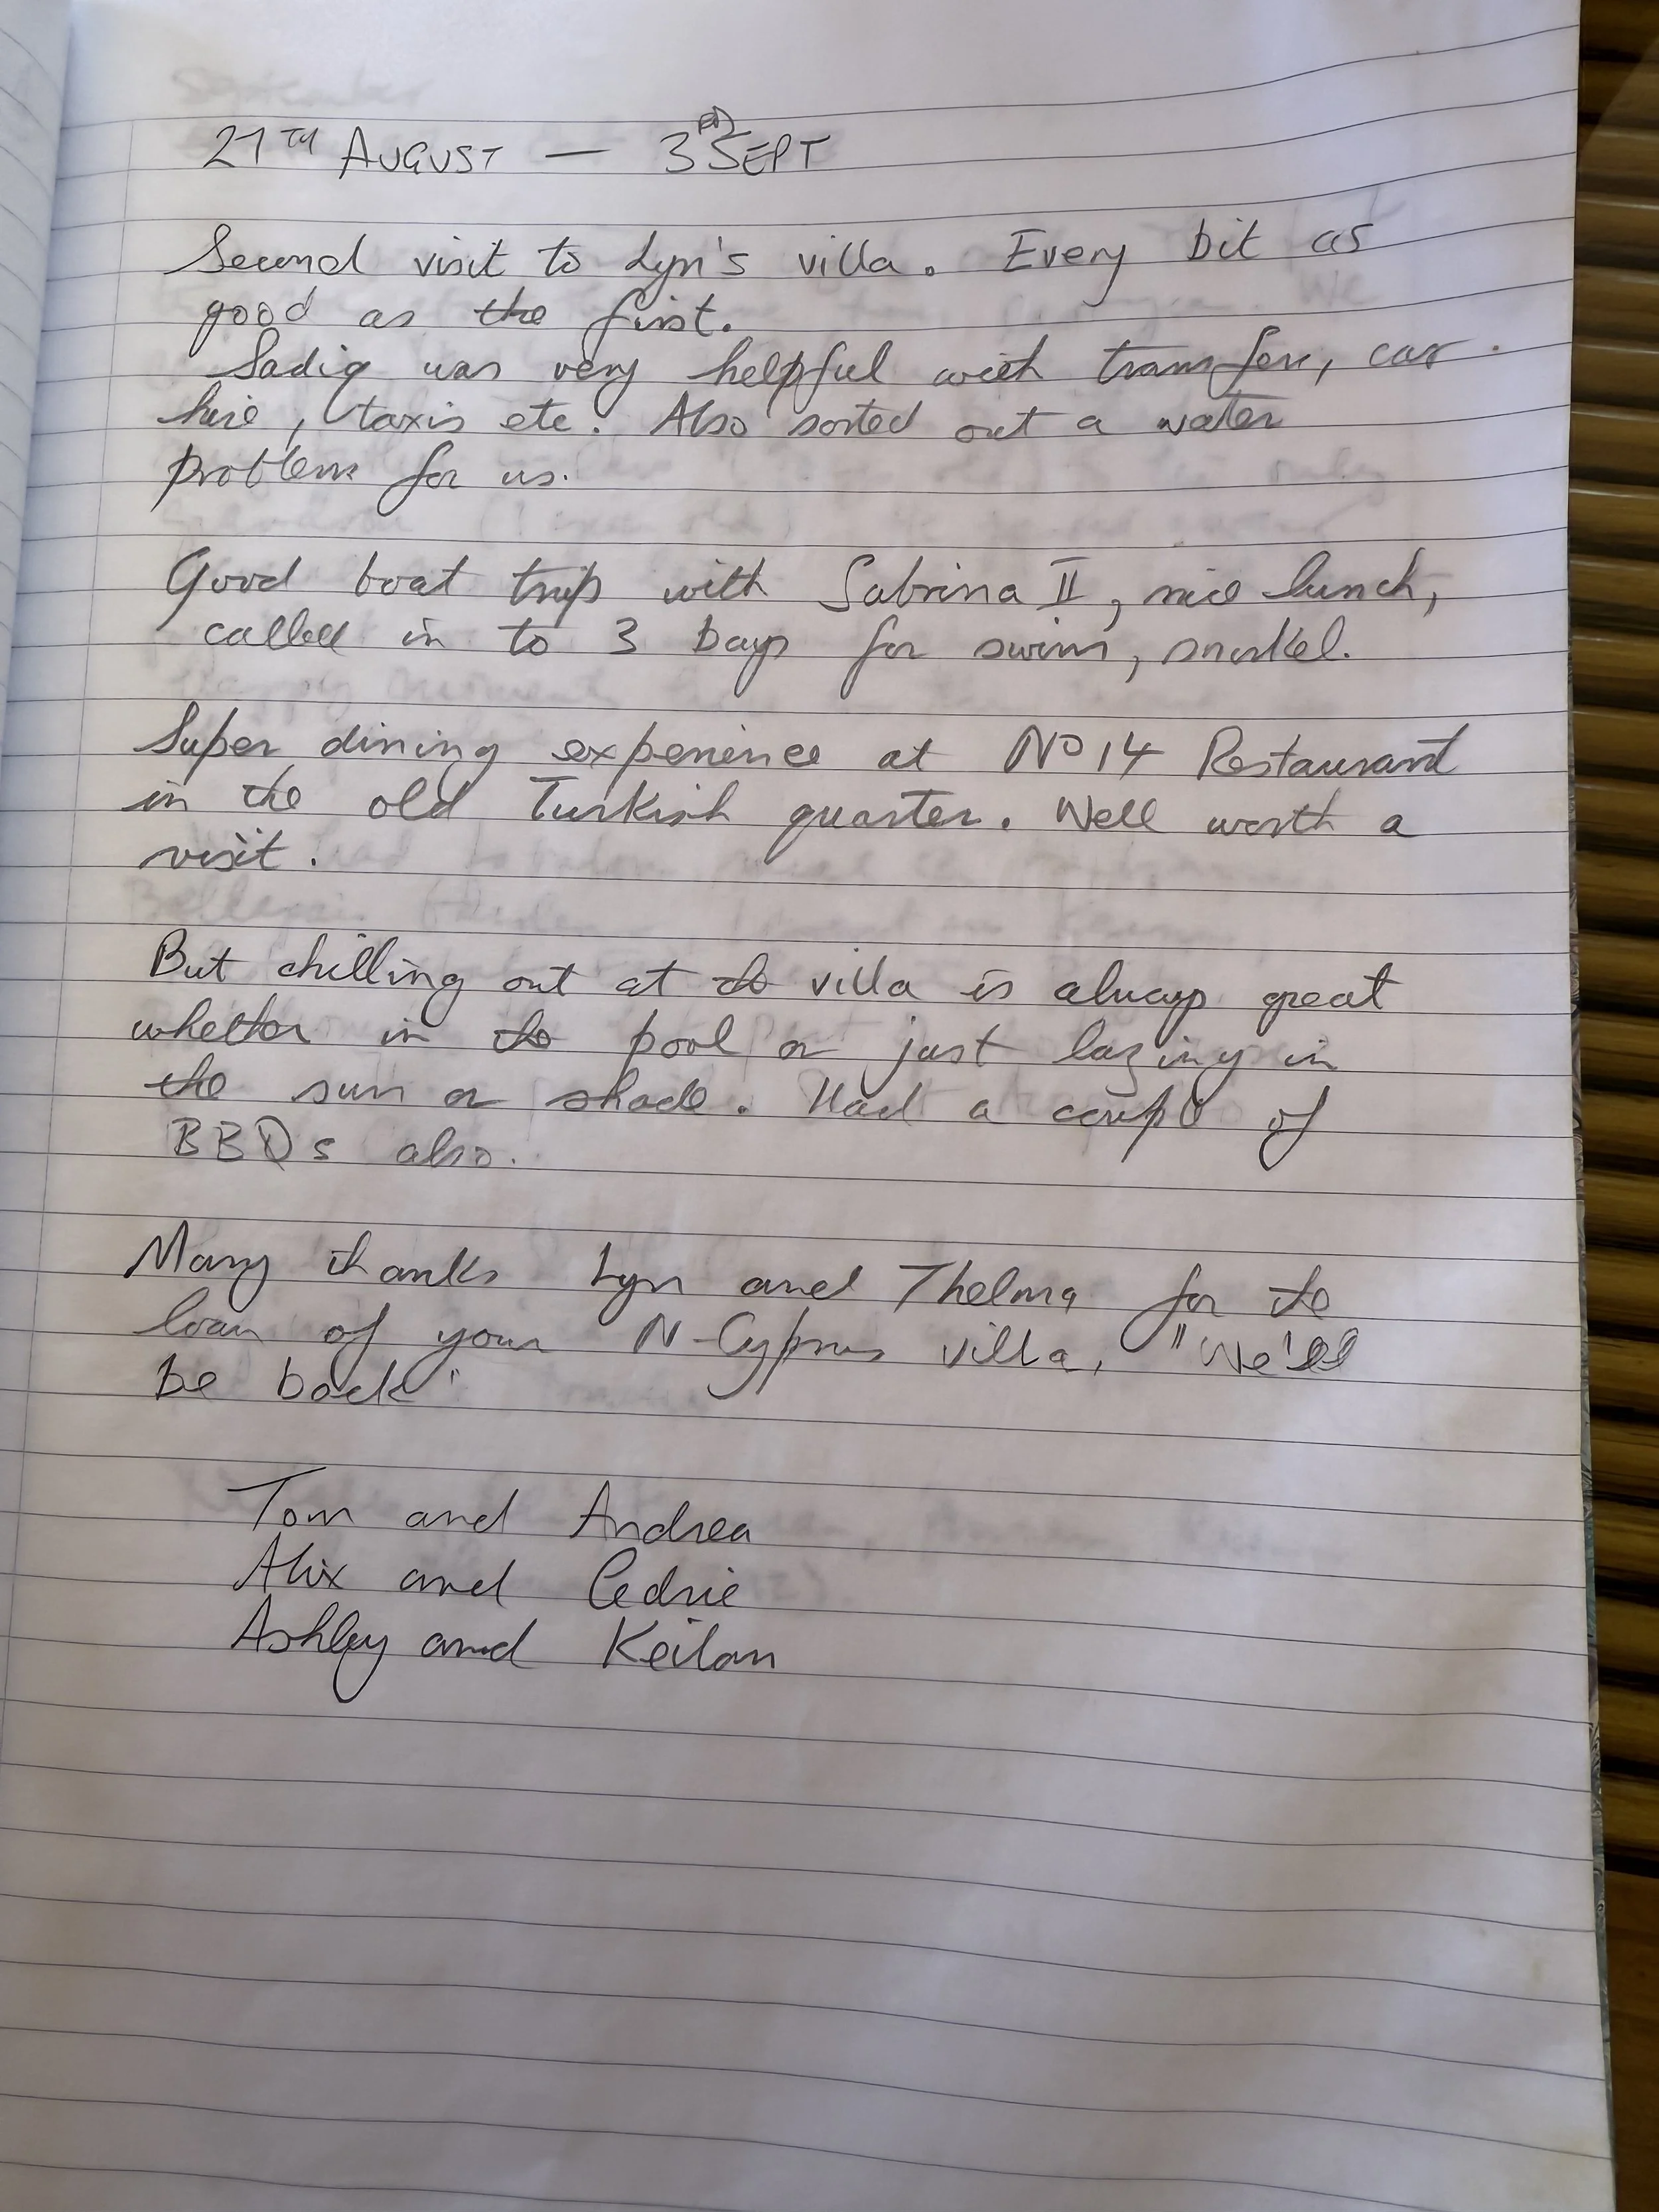 27TH AUGUST — 3RD SEPT
Second visit to Lyn's villa. Every bit as
good as the first.
Sadiq was very helpful with transfers, car
hire, taxis etc. Also sorted out a water
problem for us.
Good boat trip with Sabrina II, nice lunch,
called in to 3 bays for swim, snorkel.
Super dining experience at No 14 Restaurant
in the old Turkish quarter. Well worth a
visit.
But chilling out at the villa is always great
whether in the pool or just lazing in
the sun or shade. Had a couple of
BBQs also.
Many thanks Lyn and Thelma for the
loan of your N-Cyprus villa, "We'll
be back"
Tom and Andrea
Alix and Cedric
Ashley and Keilan